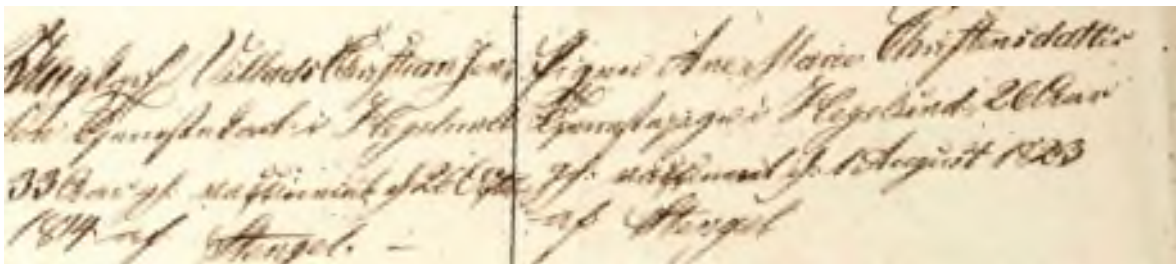 Ungkarl Villads Christian Jen-
sen Tjenestekarl i Hegelund
33 Aar gl. vaccineret d 26
1814 af Stengel. –
Pigen Ane Marie Christensdatter
Tjenestepige i Hegelund, 26 Aar
gl. vaccineret d. 1 August 1823
af Stengel